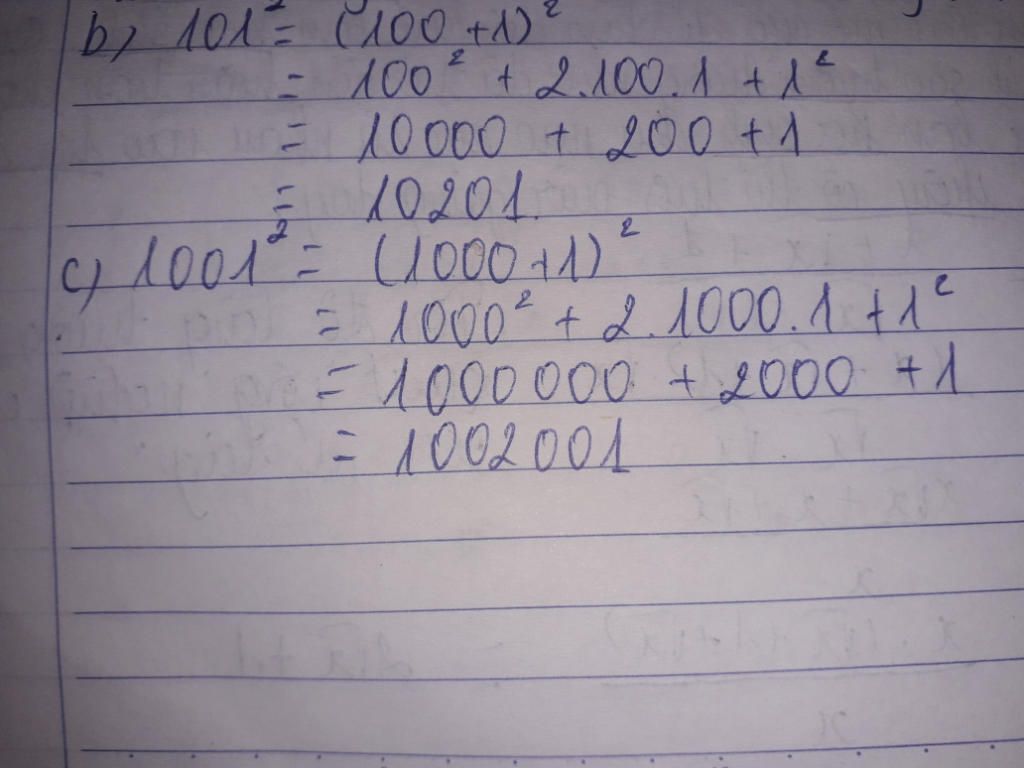 b) 101² = (100+1)²
= 100² + 2.100.1 + 1²
= 10000 + 200 + 1
= 10201.
c) 1001² = (1000+1)²
= 1000² + 2.1000.1 + 1²
= 1000000 + 2000 + 1
= 1002001